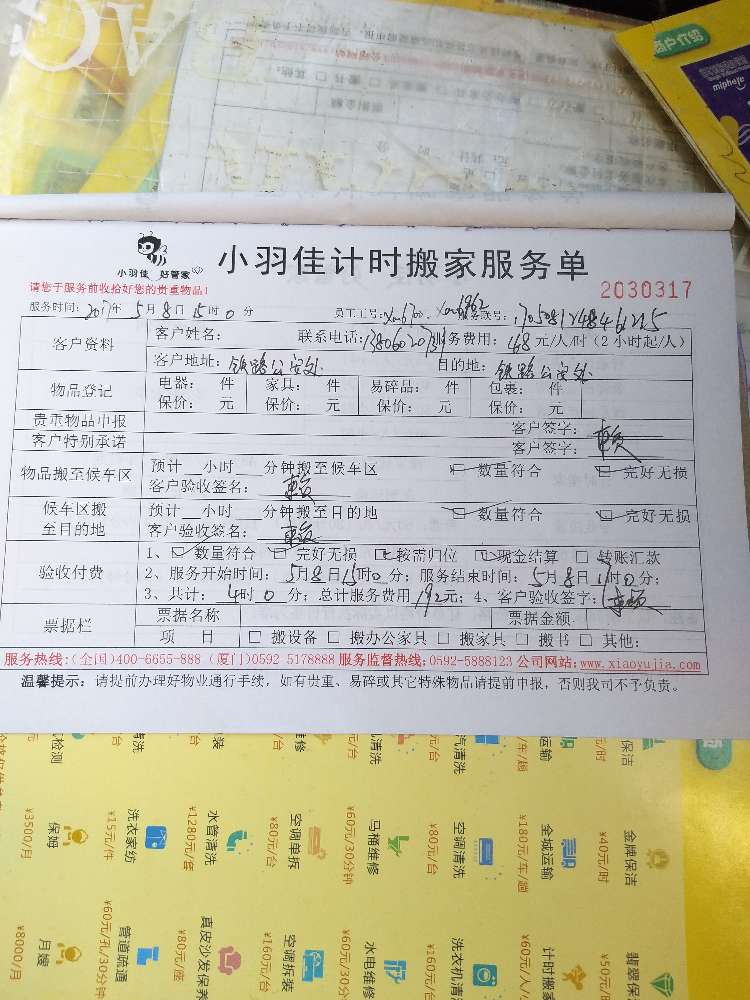 商户介绍
miphefe
小羽佳 好管家
小羽佳计时搬家服务单
请您于服务前收拾好您的贵重物品!
2030317
服务时间: 2017年 5月 8日 15时 0分 员工工号: 服务联号:
客户资料
客户姓名: 联系电话: 服务费用: 48 元/人/时 (2小时起/人)
客户地址: 铁路公安处 目的地: 铁路公安处
物品登记
电器: 件 家具: 件 易碎品: 件 包裹: 件
保价: 元 保价: 元 保价: 元 保价: 元
贵重物品申报 客户签字: 赖
客户特别承诺 客户签字:
物品搬至候车区
预计 小时 分钟搬至候车区 数量符合 完好无损
客户验收签名: 赖
候车区搬至目的地
预计 小时 分钟搬至目的地 数量符合 完好无损
客户验收签名: 赖
验收付费
1、 数量符合 完好无损 按需归位 现金结算 □ 转账汇款
2、服务开始时间: 5月8日15时0分; 服务结束时间: 5月8日17时0分;
3、共计: 4时 0 分; 总计服务费用 192元; 4、客户验收签字: 赖
票据栏
票据名称 票据金额
项 目 □ 搬设备 □ 搬办公家具 □ 搬家具 □ 搬书 □ 其他:
服务热线:(全国)400-6655-888 (厦门)0592 5178888 服务监督热线:0592-5888123 公司网站:www.xiaoyujia.com
温馨提示: 请提前办理好物业通行手续, 如有贵重、易碎或其它特殊物品请提前申报, 否则我司不予负责。
金牌保洁 ¥40元/时
全城运输 ¥180元/车/趟
空调清洗 ¥80元/台
马桶维修 ¥60元/30分钟
空调单拆 ¥80元/台
水管清洗 ¥1280元/套
洗衣家纺 ¥15元/件
保姆 ¥3500/月
翡翠保洁
计时搬家
洗衣机清洗 ¥160元/台
水电维修 ¥60元/30分
空调拆装 ¥160元/台
真皮沙发保养 ¥80元/座
管道疏通 ¥60元/孔/30分钟
月嫂 ¥8000/月